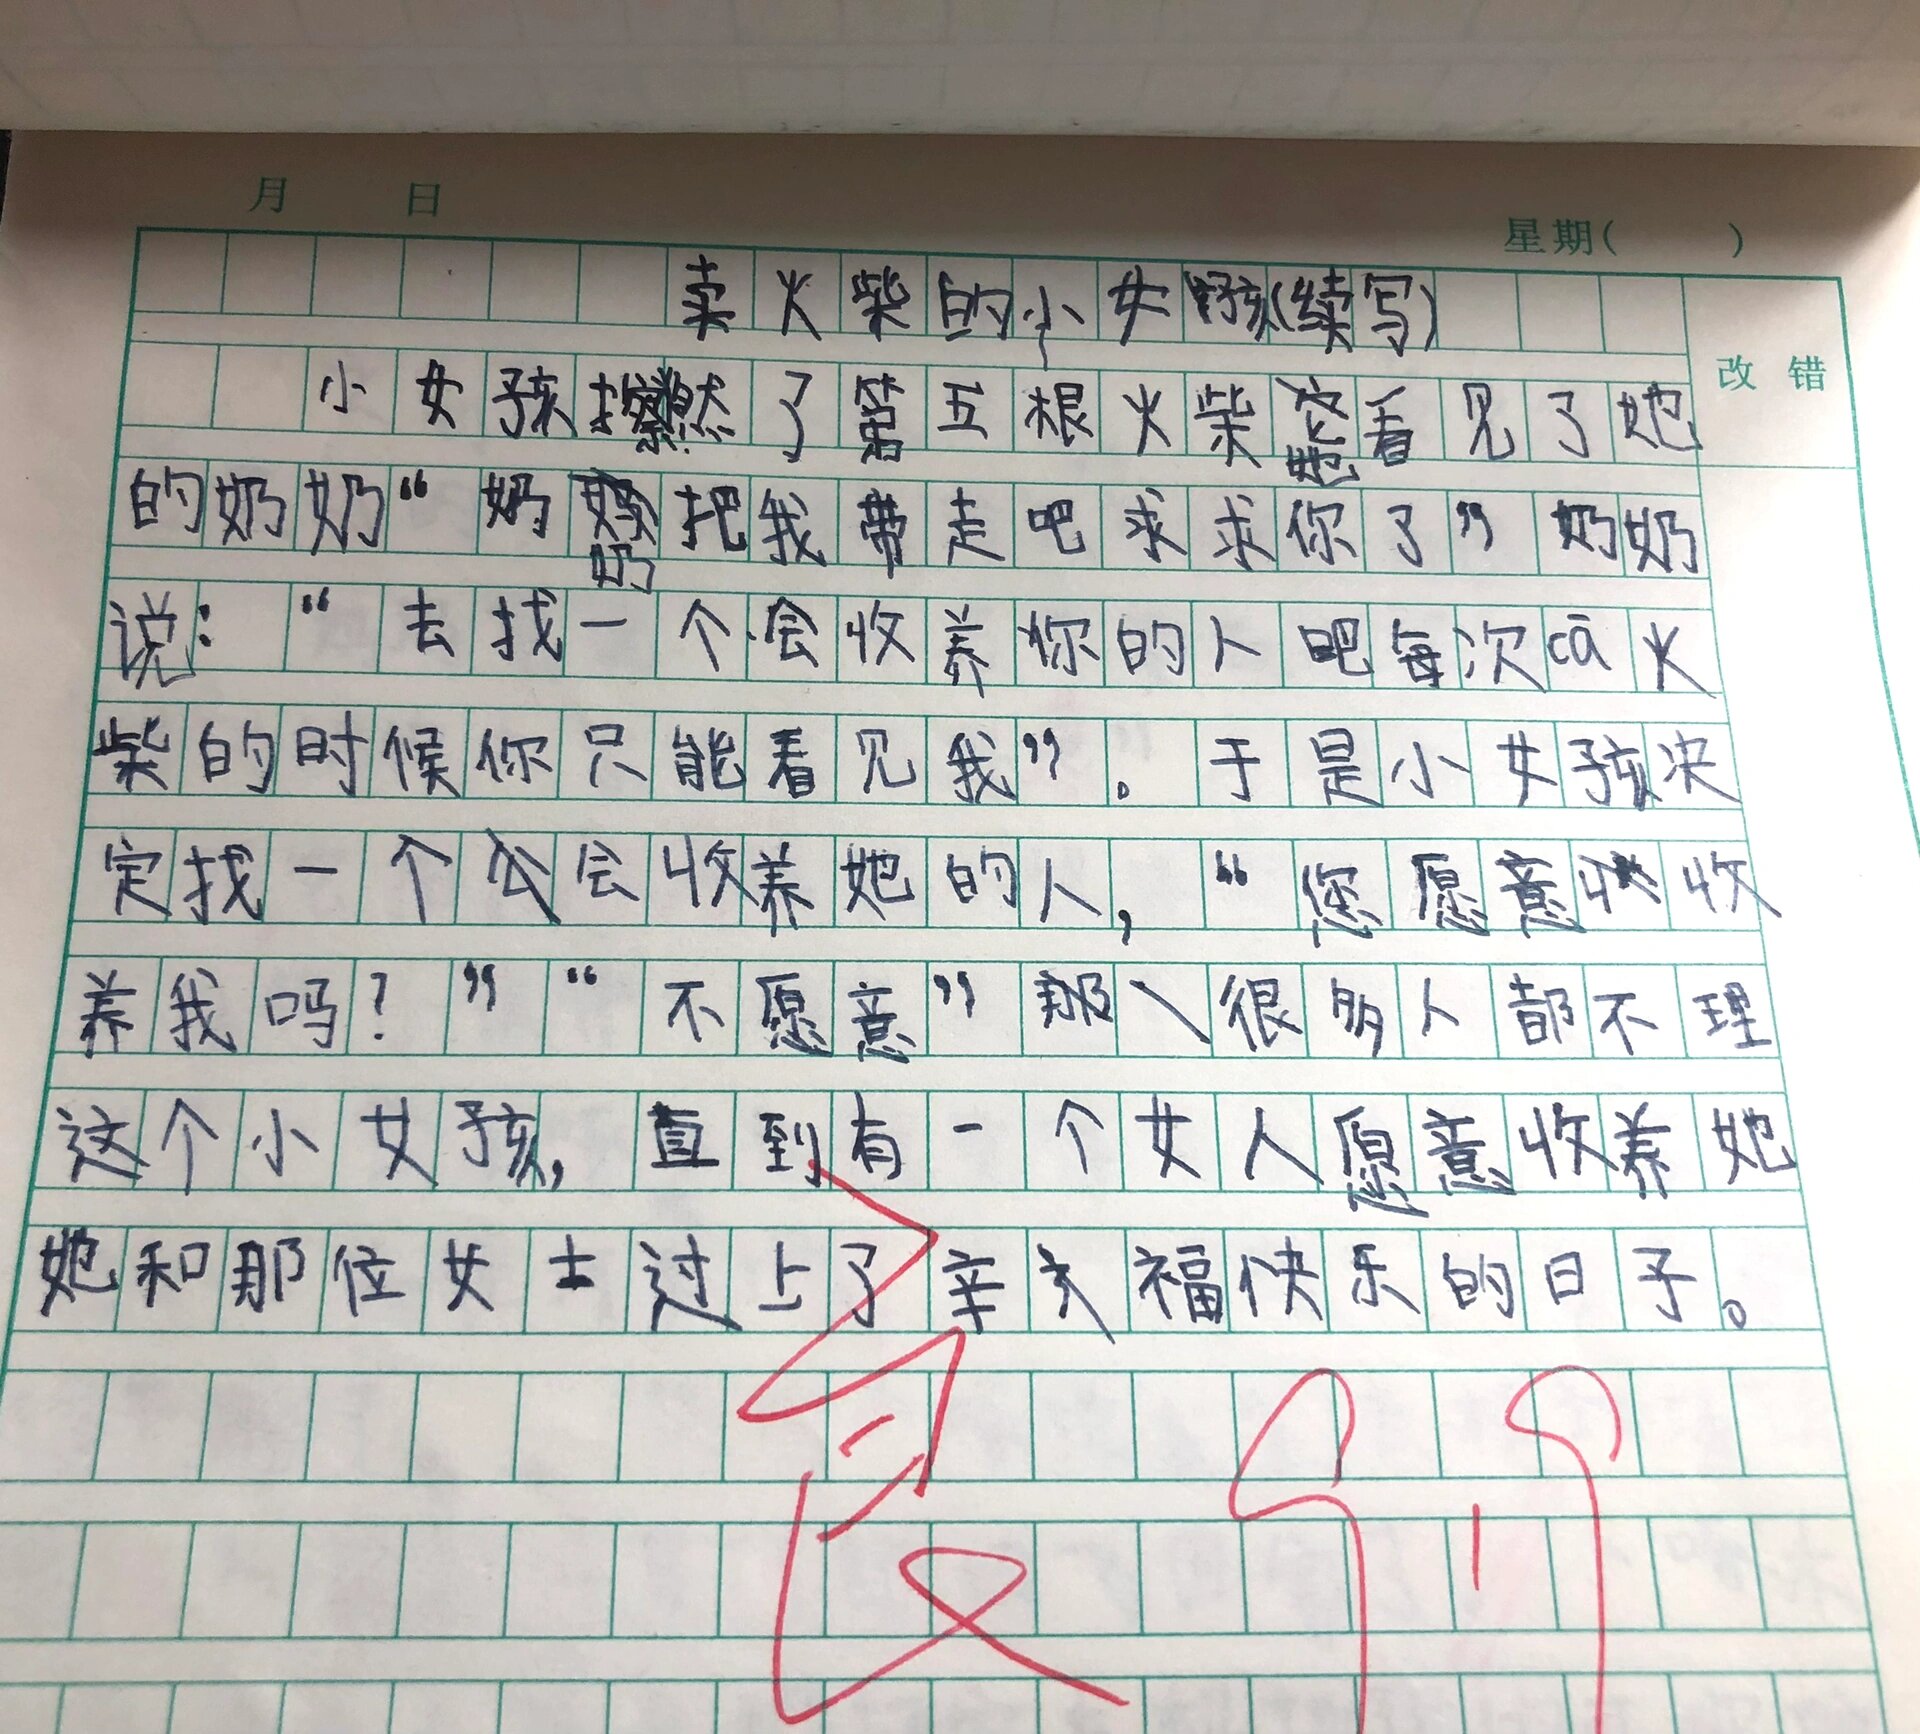 月 日
星期( )
改错
卖火柴的小女孩(续写)
小女孩擦燃了第五根火柴她看见了她
的奶奶“奶奶把我带走吧求求你了”奶奶
说：“去找一个会收养你的人吧每次cā火
柴的时候你只能看见我”。于是小女孩决
定找一个会收养她的人，“您愿意收
养我吗？”“不愿意”那、很多人都不理
这个小女孩，直到有一个女人愿意收养她
她和那位女士过上了辛福快乐的日子。